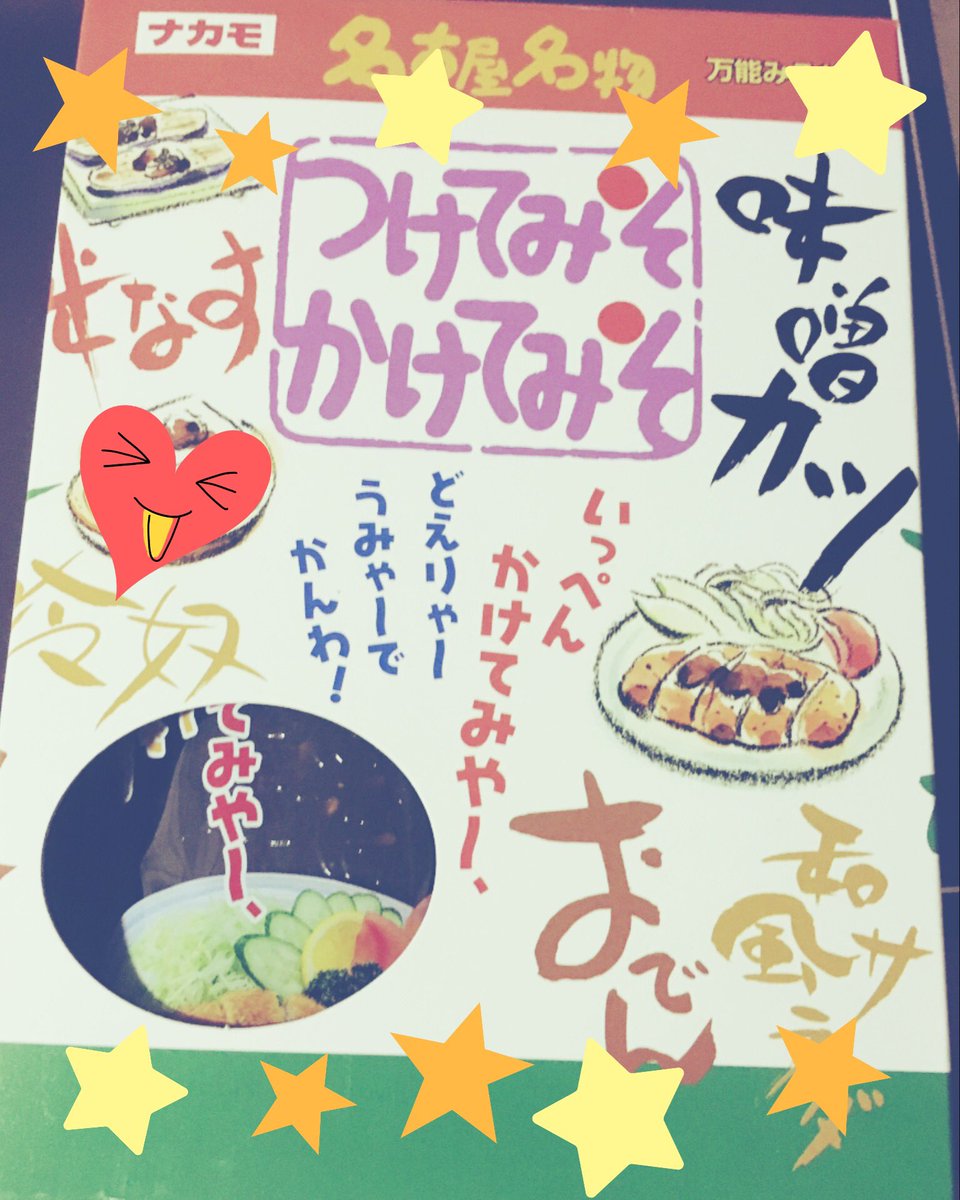 ナカモ
名古屋名物
万能み
つけてみそ
かけてみそ
味噌カツ
なす
いっぺん
かけてみや〜、
どえりゃー
うみゃーで
かんわ!
冷奴
てみや〜、
おでん
和風サラダ